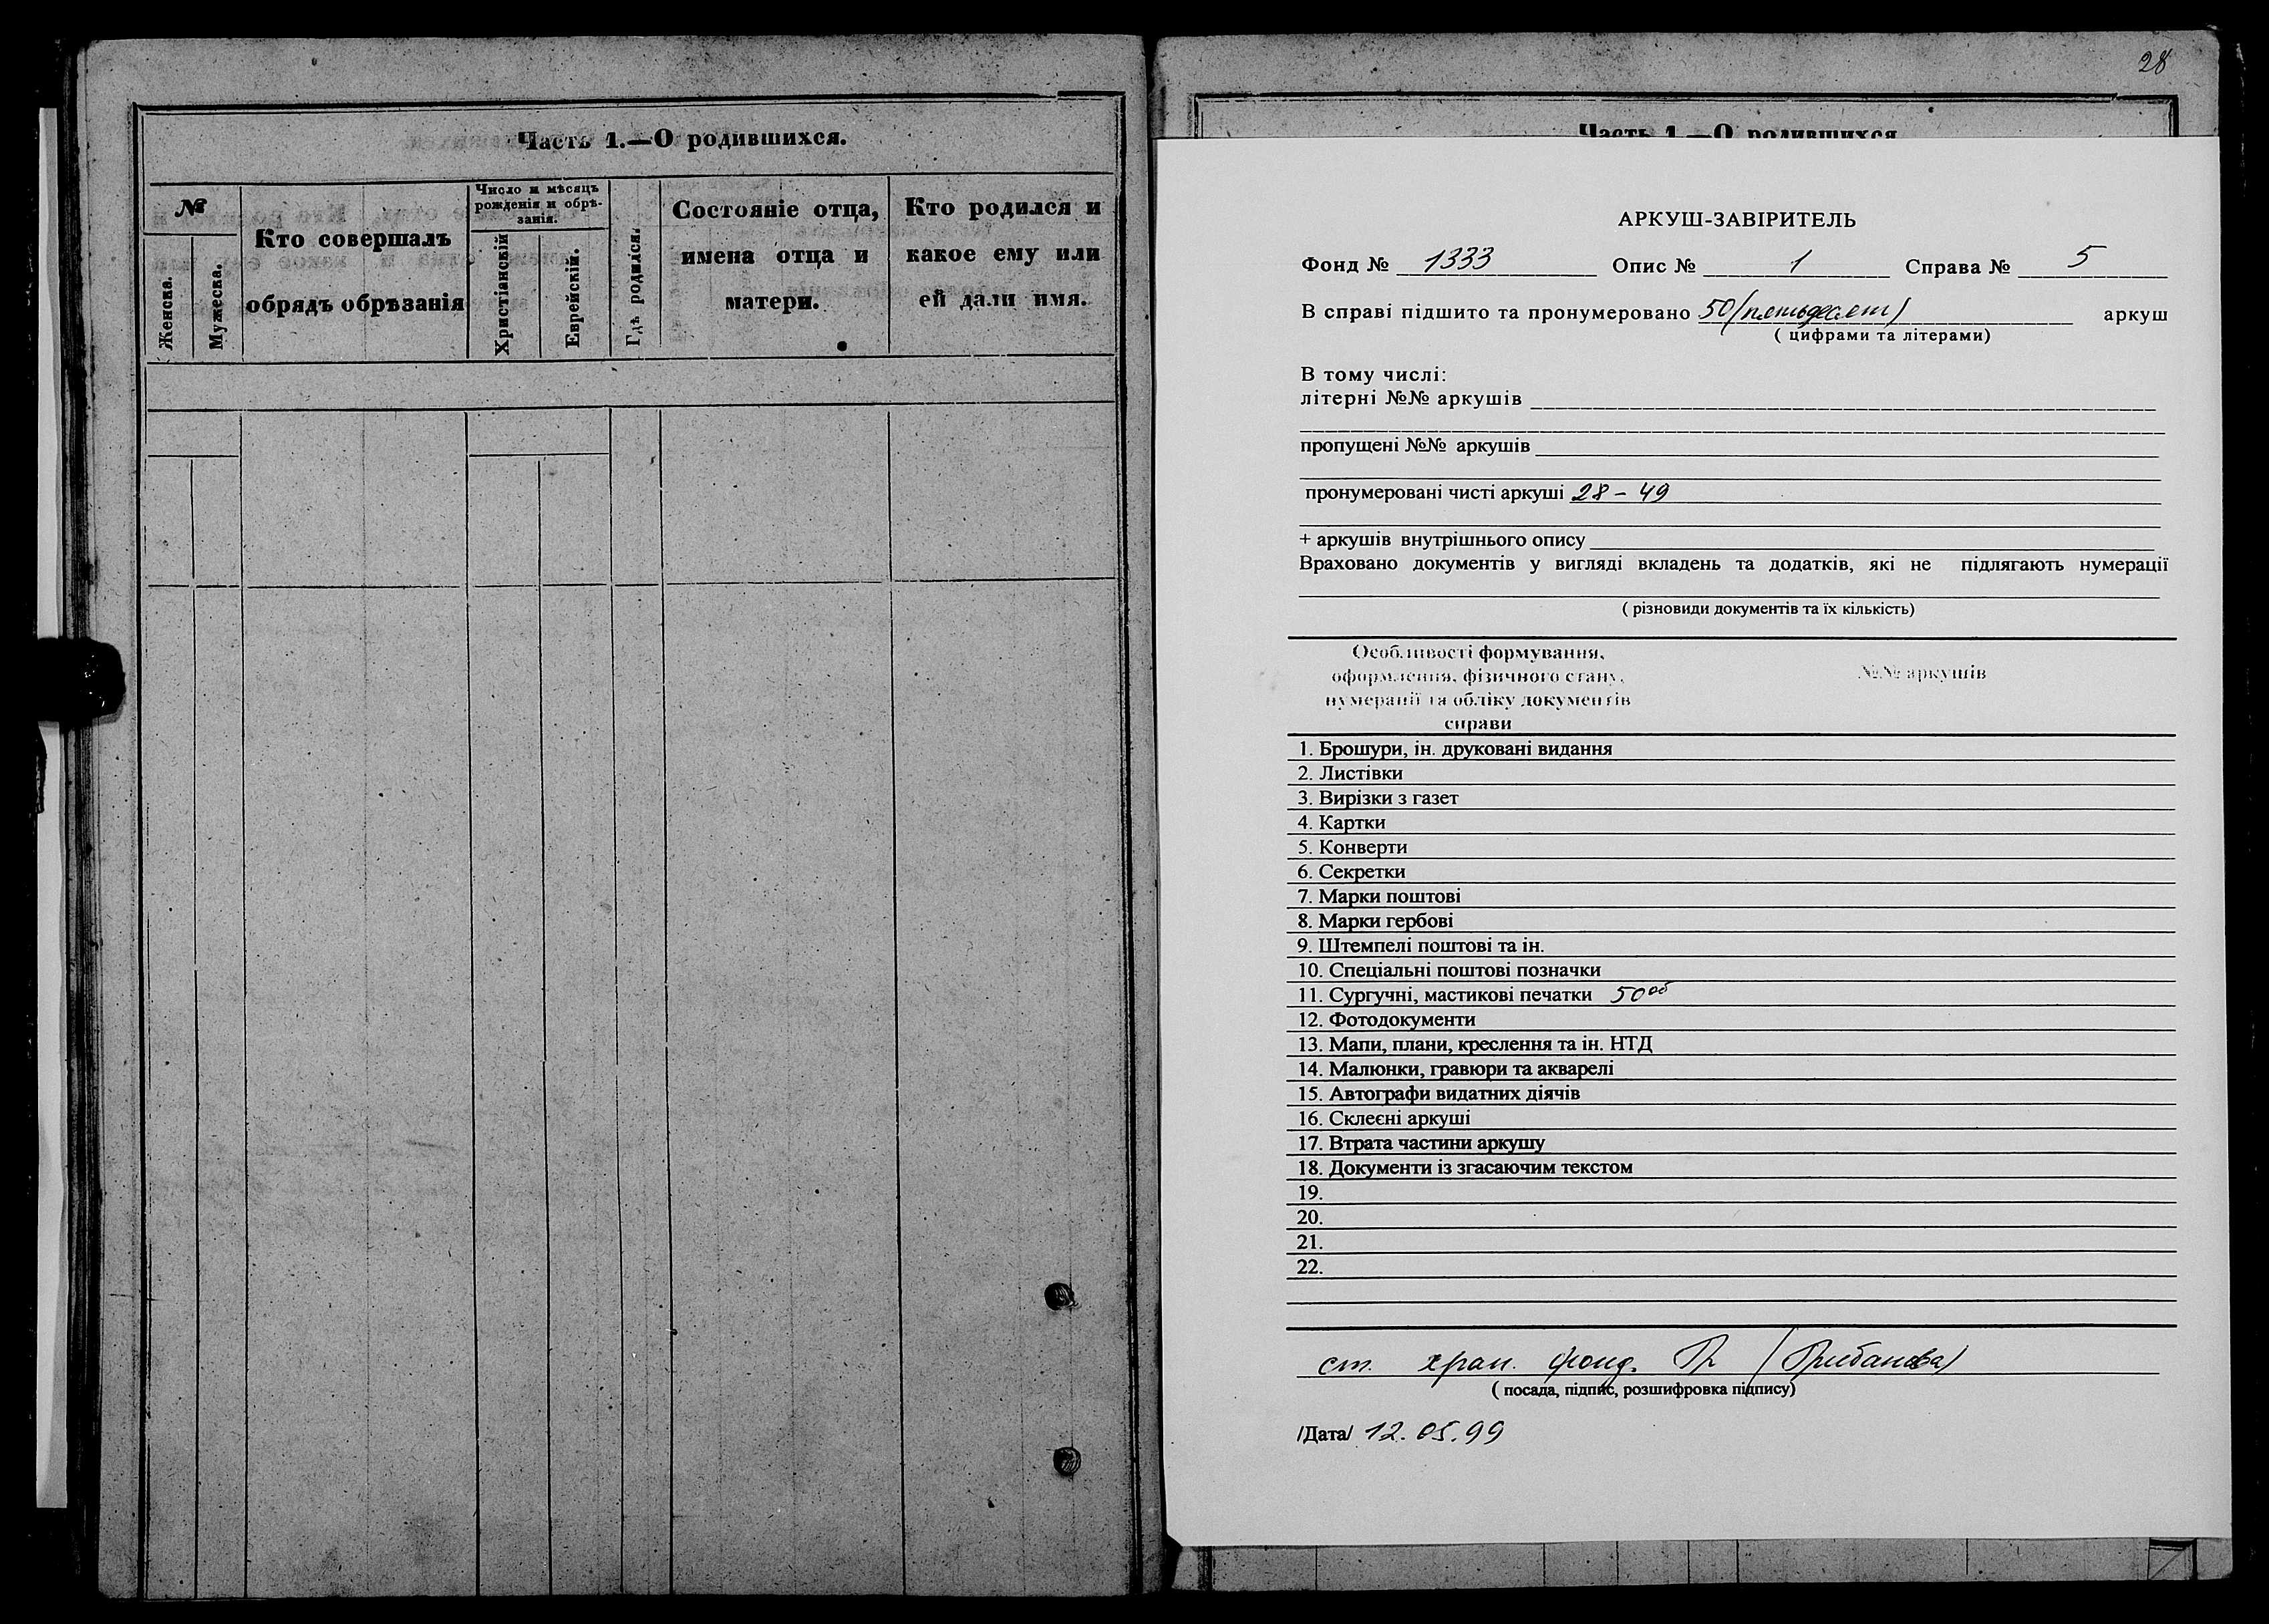 Часть 1.—О родившихся.
№
Женска.
Мужеска.
Кто совершалъ
обрядъ обрѣзанія
Число и мѣсяцъ
рожденія и обрѣ-
занія.
Христіанскій
Еврейскій.
Гдѣ родился.
Состояніе отца,
имена отца и
матери.
Кто родился и
какое ему или
ей дали имя.
28
Часть 1.—О родившихся
АРКУШ-ЗАВІРИТЕЛЬ
Фонд № 1333 Опис № 1 Справа № 5
В справі підшито та пронумеровано 50 (пятьдесят) аркуш
( цифрами та літерами)
В тому числі:
літерні №№ аркушів
пропущені №№ аркушів
пронумеровані чисті аркуші 28 – 49
+ аркушів внутрішнього опису
Враховано документів у вигляді вкладень та додатків, які не підлягають нумерації
( різновиди документів та їх кількість)
Особливості формування,
оформлення, фізичного стану,
нумерації та обліку документів
справи
№№ аркушів
1. Брошури, ін. друковані видання
2. Листівки
3. Вирізки з газет
4. Картки
5. Конверти
6. Секретки
7. Марки поштові
8. Марки гербові
9. Штемпелі поштові та ін.
10. Спеціальні поштові позначки
11. Сургучні, мастикові печатки 50об
12. Фотодокументи
13. Мапи, плани, креслення та ін. НТД
14. Малюнки, гравюри та акварелі
15. Автографи видатних діячів
16. Склеєні аркуші
17. Втрата частини аркушу
18. Документи із згасаючим текстом
19.
20.
21.
22.
ст. хран. фонд. (Рыбакова)
( посада, підпис, розшифровка підпису)
/Дата/ 12.05.99